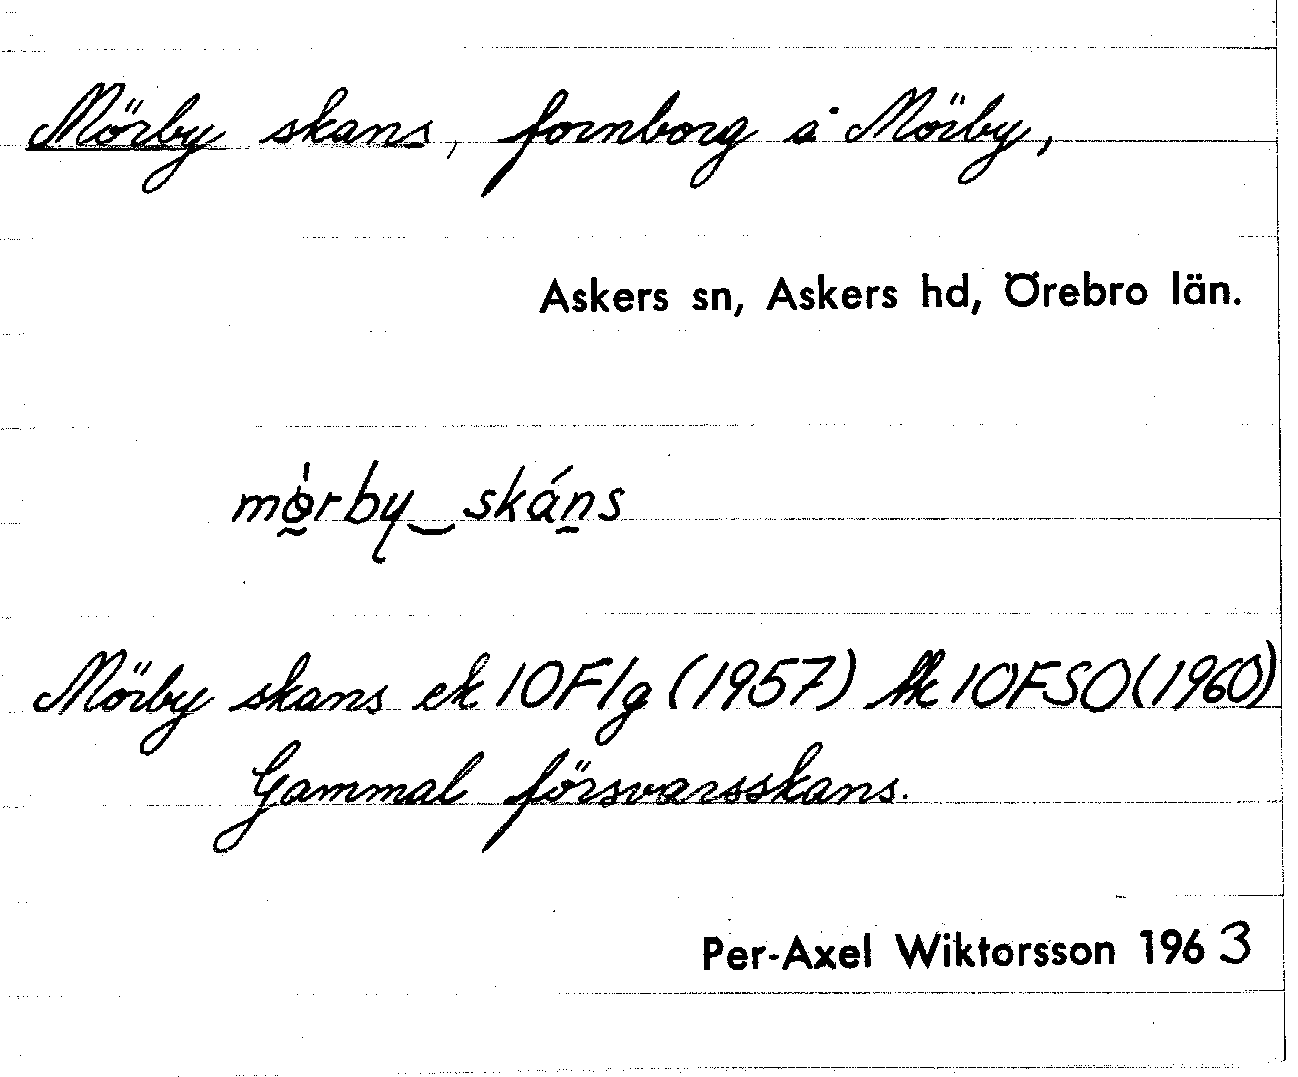 Mörby skans, fornborg å Mörby,
Askers sn, Askers hd, Örebro län.
mörby‿skáns
Mörby skans ek 10F1g (1957) 10FSO (1960)
Gammal försvarsskans.
Per-Axel Wiktorsson 1963